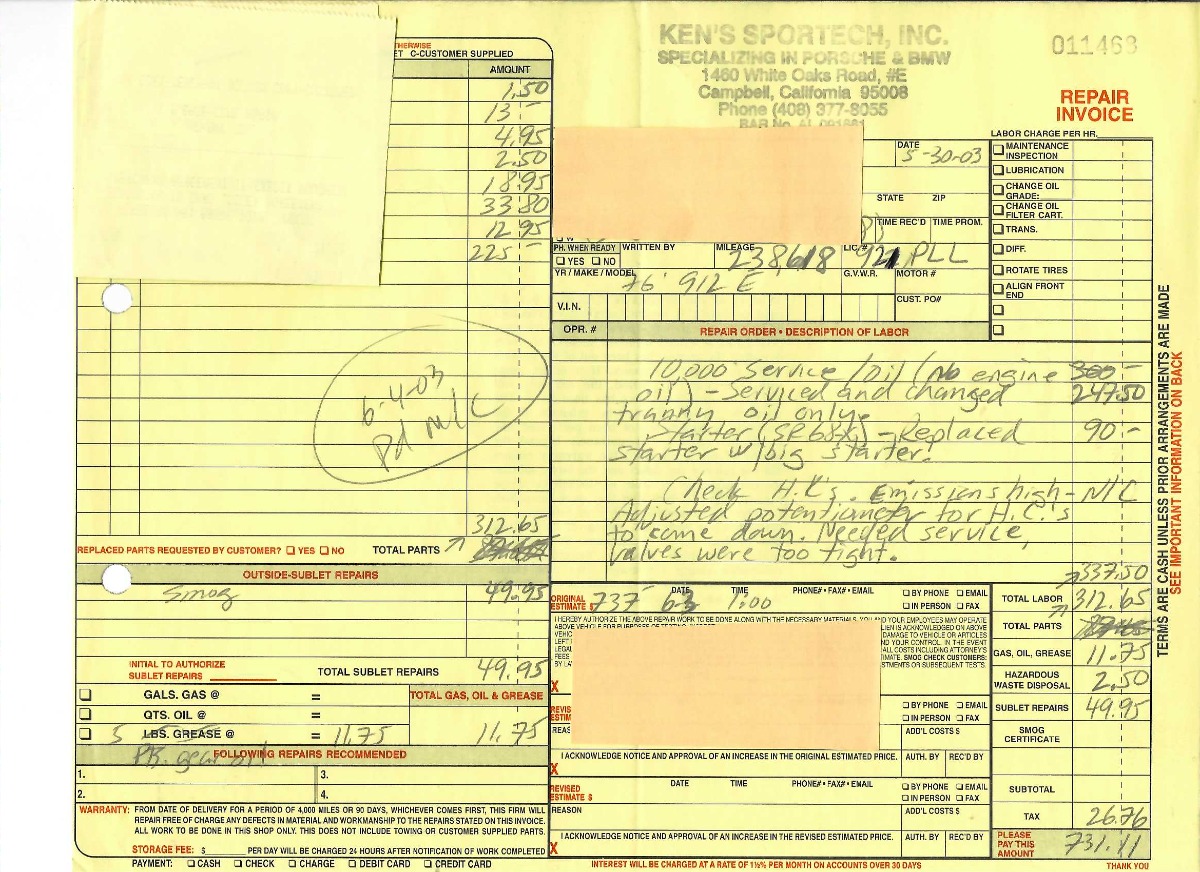 KEN'S SPORTECH, INC.
SPECIALIZING IN PORSCHE & BMW
1460 White Oaks Road, #E
Campbell, California 95008
Phone (408) 377-8055
BAR No.
011468
REPAIR
INVOICE
ET C-CUSTOMER SUPPLIED
AMOUNT
1.50
13 -
4.95
2.50
18.95
33.80
12.95
225 -
6-4-03
Pd M/C
312.65
REPLACED PARTS REQUESTED BY CUSTOMER? YES NO TOTAL PARTS
OUTSIDE-SUBLET REPAIRS
Smog 49.95
INITIAL TO AUTHORIZE
SUBLET REPAIRS
TOTAL SUBLET REPAIRS 49.95
GALS. GAS @ =
TOTAL GAS, OIL & GREASE
QTS. OIL @ =
5 LBS. GREASE @ = 11.75 11.75
gear oil
FOLLOWING REPAIRS RECOMMENDED
1. 3.
2. 4.
WARRANTY: FROM DATE OF DELIVERY FOR A PERIOD OF 4,000 MILES OR 90 DAYS, WHICHEVER COMES FIRST, THIS FIRM WILL
REPAIR FREE OF CHARGE ANY DEFECTS IN MATERIAL AND WORKMANSHIP TO THE REPAIRS STATED ON THIS INVOICE.
ALL WORK TO BE DONE IN THIS SHOP ONLY. THIS DOES NOT INCLUDE TOWING OR CUSTOMER SUPPLIED PARTS.
STORAGE FEE: $ PER DAY WILL BE CHARGED 24 HOURS AFTER NOTIFICATION OF WORK COMPLETED
PAYMENT: CASH CHECK CHARGE DEBIT CARD CREDIT CARD
DATE
5-30-03
STATE ZIP
TIME REC'D TIME PROM.
PH. WHEN READY
YES NO
WRITTEN BY
MILEAGE
238,618
LIC. #
921 PLL
YR / MAKE / MODEL
76' 912 E
G.V.W.R. MOTOR #
V.I.N.
CUST. PO#
OPR. # REPAIR ORDER • DESCRIPTION OF LABOR
10,000 Service/oil (No engine 300 -
oil) - Serviced and changed 247.50
tranny oil only.
Starter - Replaced 90 -
starter w/big starter.
Check H.C's. Emissions high - N/C
Adjusted potentiometer for H.C.'s
to come down. Needed service,
valves were too tight.
337.50
ORIGINAL
ESTIMATE $ 737
DATE
6-3
TIME
1:00
PHONE# • FAX# • EMAIL
BY PHONE EMAIL
IN PERSON FAX
X
BY PHONE EMAIL
IN PERSON FAX
ADD'L COSTS $
I ACKNOWLEDGE NOTICE AND APPROVAL OF AN INCREASE IN THE ORIGINAL ESTIMATED PRICE.
AUTH. BY REC'D BY
X
REVISED
ESTIMATE $
DATE TIME PHONE# • FAX# • EMAIL
BY PHONE EMAIL
IN PERSON FAX
REASON
ADD'L COSTS $
I ACKNOWLEDGE NOTICE AND APPROVAL OF AN INCREASE IN THE REVISED ESTIMATED PRICE.
AUTH. BY REC'D BY
X
INTEREST WILL BE CHARGED AT A RATE OF 1½% PER MONTH ON ACCOUNTS OVER 30 DAYS
LABOR CHARGE PER HR.
MAINTENANCE
INSPECTION
LUBRICATION
CHANGE OIL
GRADE:
CHANGE OIL
FILTER CART.
TRANS.
DIFF.
ROTATE TIRES
ALIGN FRONT
END
TOTAL LABOR 312.65
TOTAL PARTS
GAS, OIL, GREASE 11.75
HAZARDOUS
WASTE DISPOSAL 2.50
SUBLET REPAIRS 49.95
SMOG
CERTIFICATE
SUBTOTAL
TAX 26.76
PLEASE
PAY THIS
AMOUNT
731.11
THANK YOU
TERMS ARE CASH UNLESS PRIOR ARRANGEMENTS ARE MADE
SEE IMPORTANT INFORMATION ON BACK